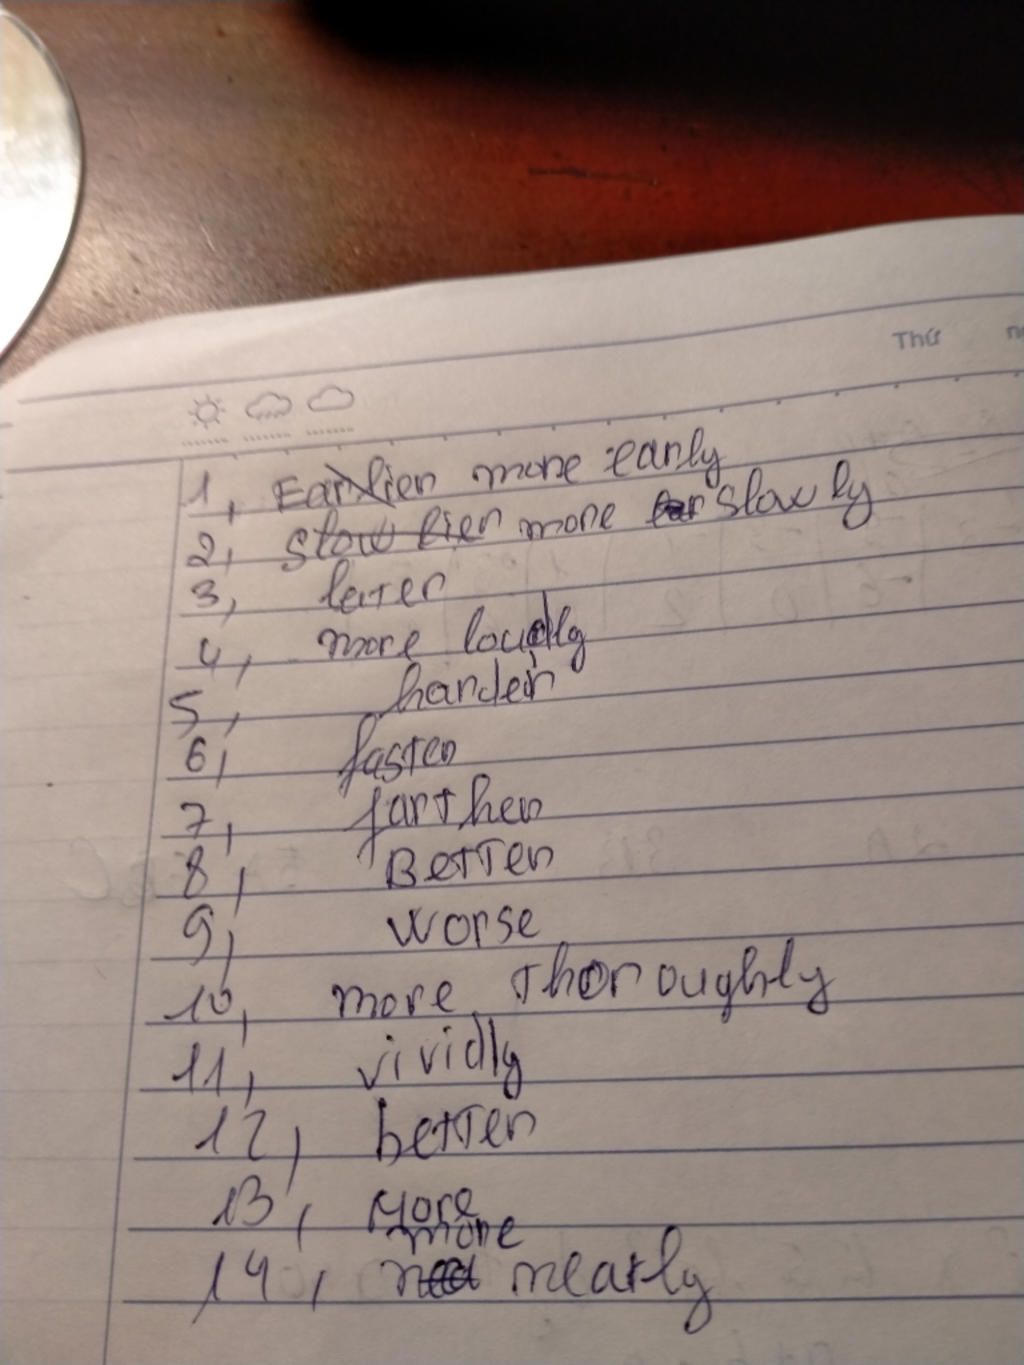 Thứ
1, Earlier more early
2, slow lier more slowly
3, later
4, more loudly
5, harder
6, faster
7, farther
8, Better
9, worse
10, more thoroughly
11, vividly
12, better
13, more
more
14, nearly